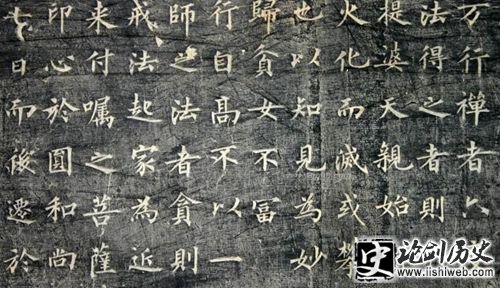 万行禅者六
法得之者則
提婆天親始
火化而滅或
也以知見為妙
歸貧女不冨
行自高不以一
師之法者貧則
戒法起家為近
来付囑之菩薩
印心於圓和尚
七日而後遷於
史 论剑历史
www.lishiweb.com